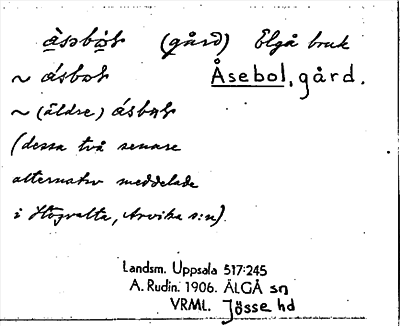 (gård) Elgå bruk
~ Åsebol, gård.
~ (äldre)
(dessa två senare
alternativ meddelade
i Högvalta, Arvika s:n).
Landsm. Uppsala 517:245
A. Rudin. 1906. ÄLGÅ sn
VRML. Jösse hd